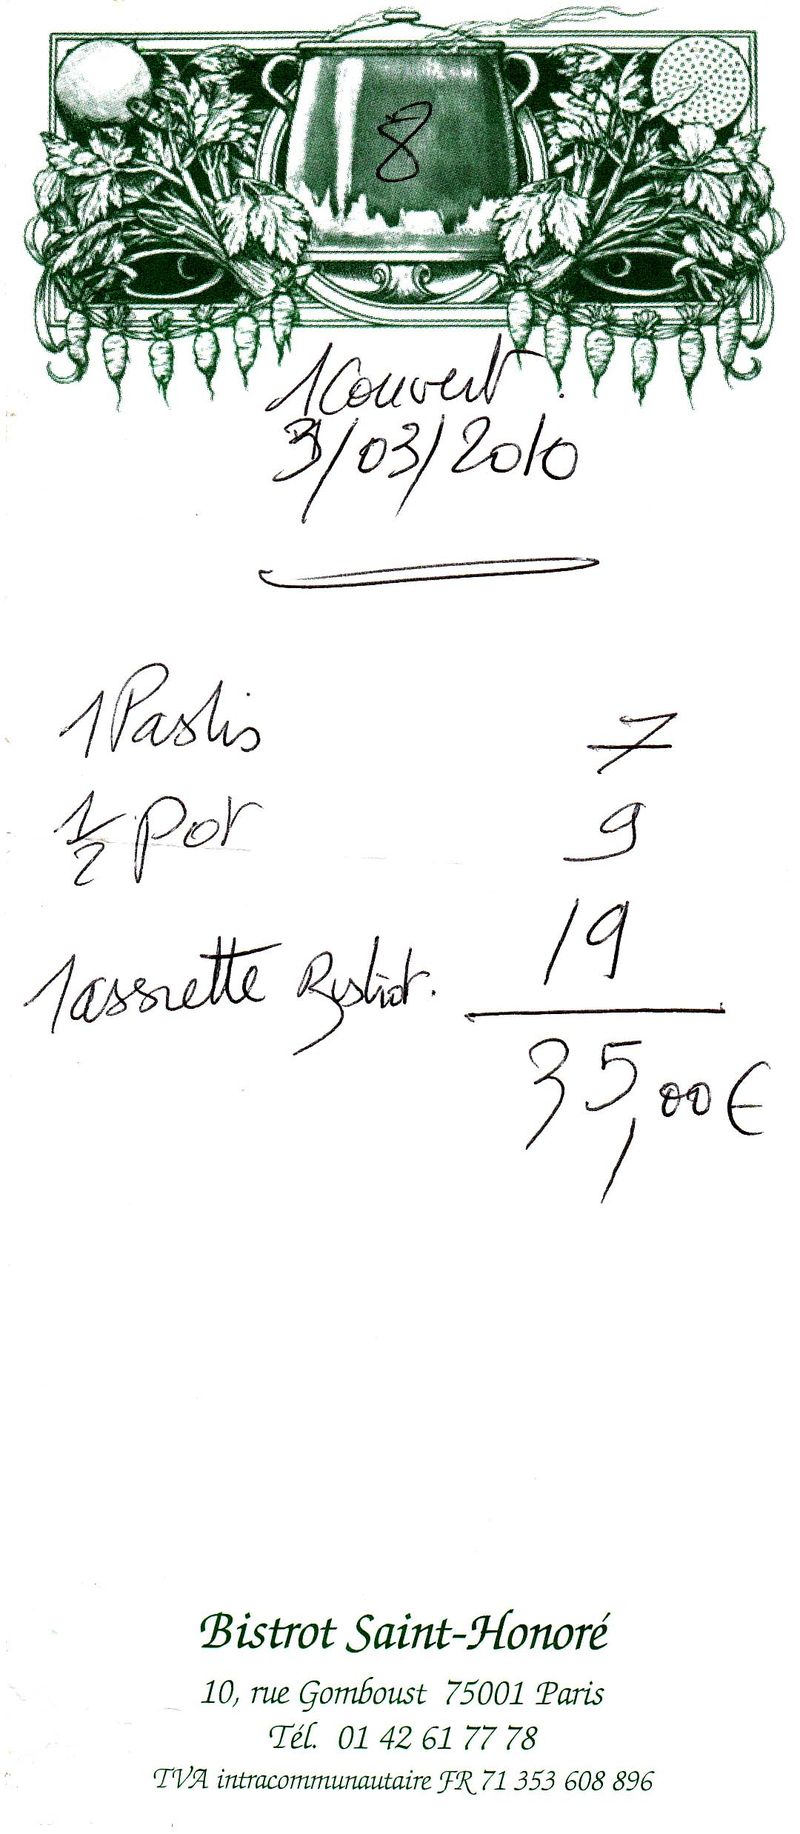 8
1 Couvert.
3/03/2010
1 Pastis 7
1/2 Pot 9
1 assiette Bistrot. 19
35,00 €
Bistrot Saint-Honoré
10, rue Gomboust 75001 Paris
Tél. 01 42 61 77 78
TVA intracommunautaire FR 71 353 608 896